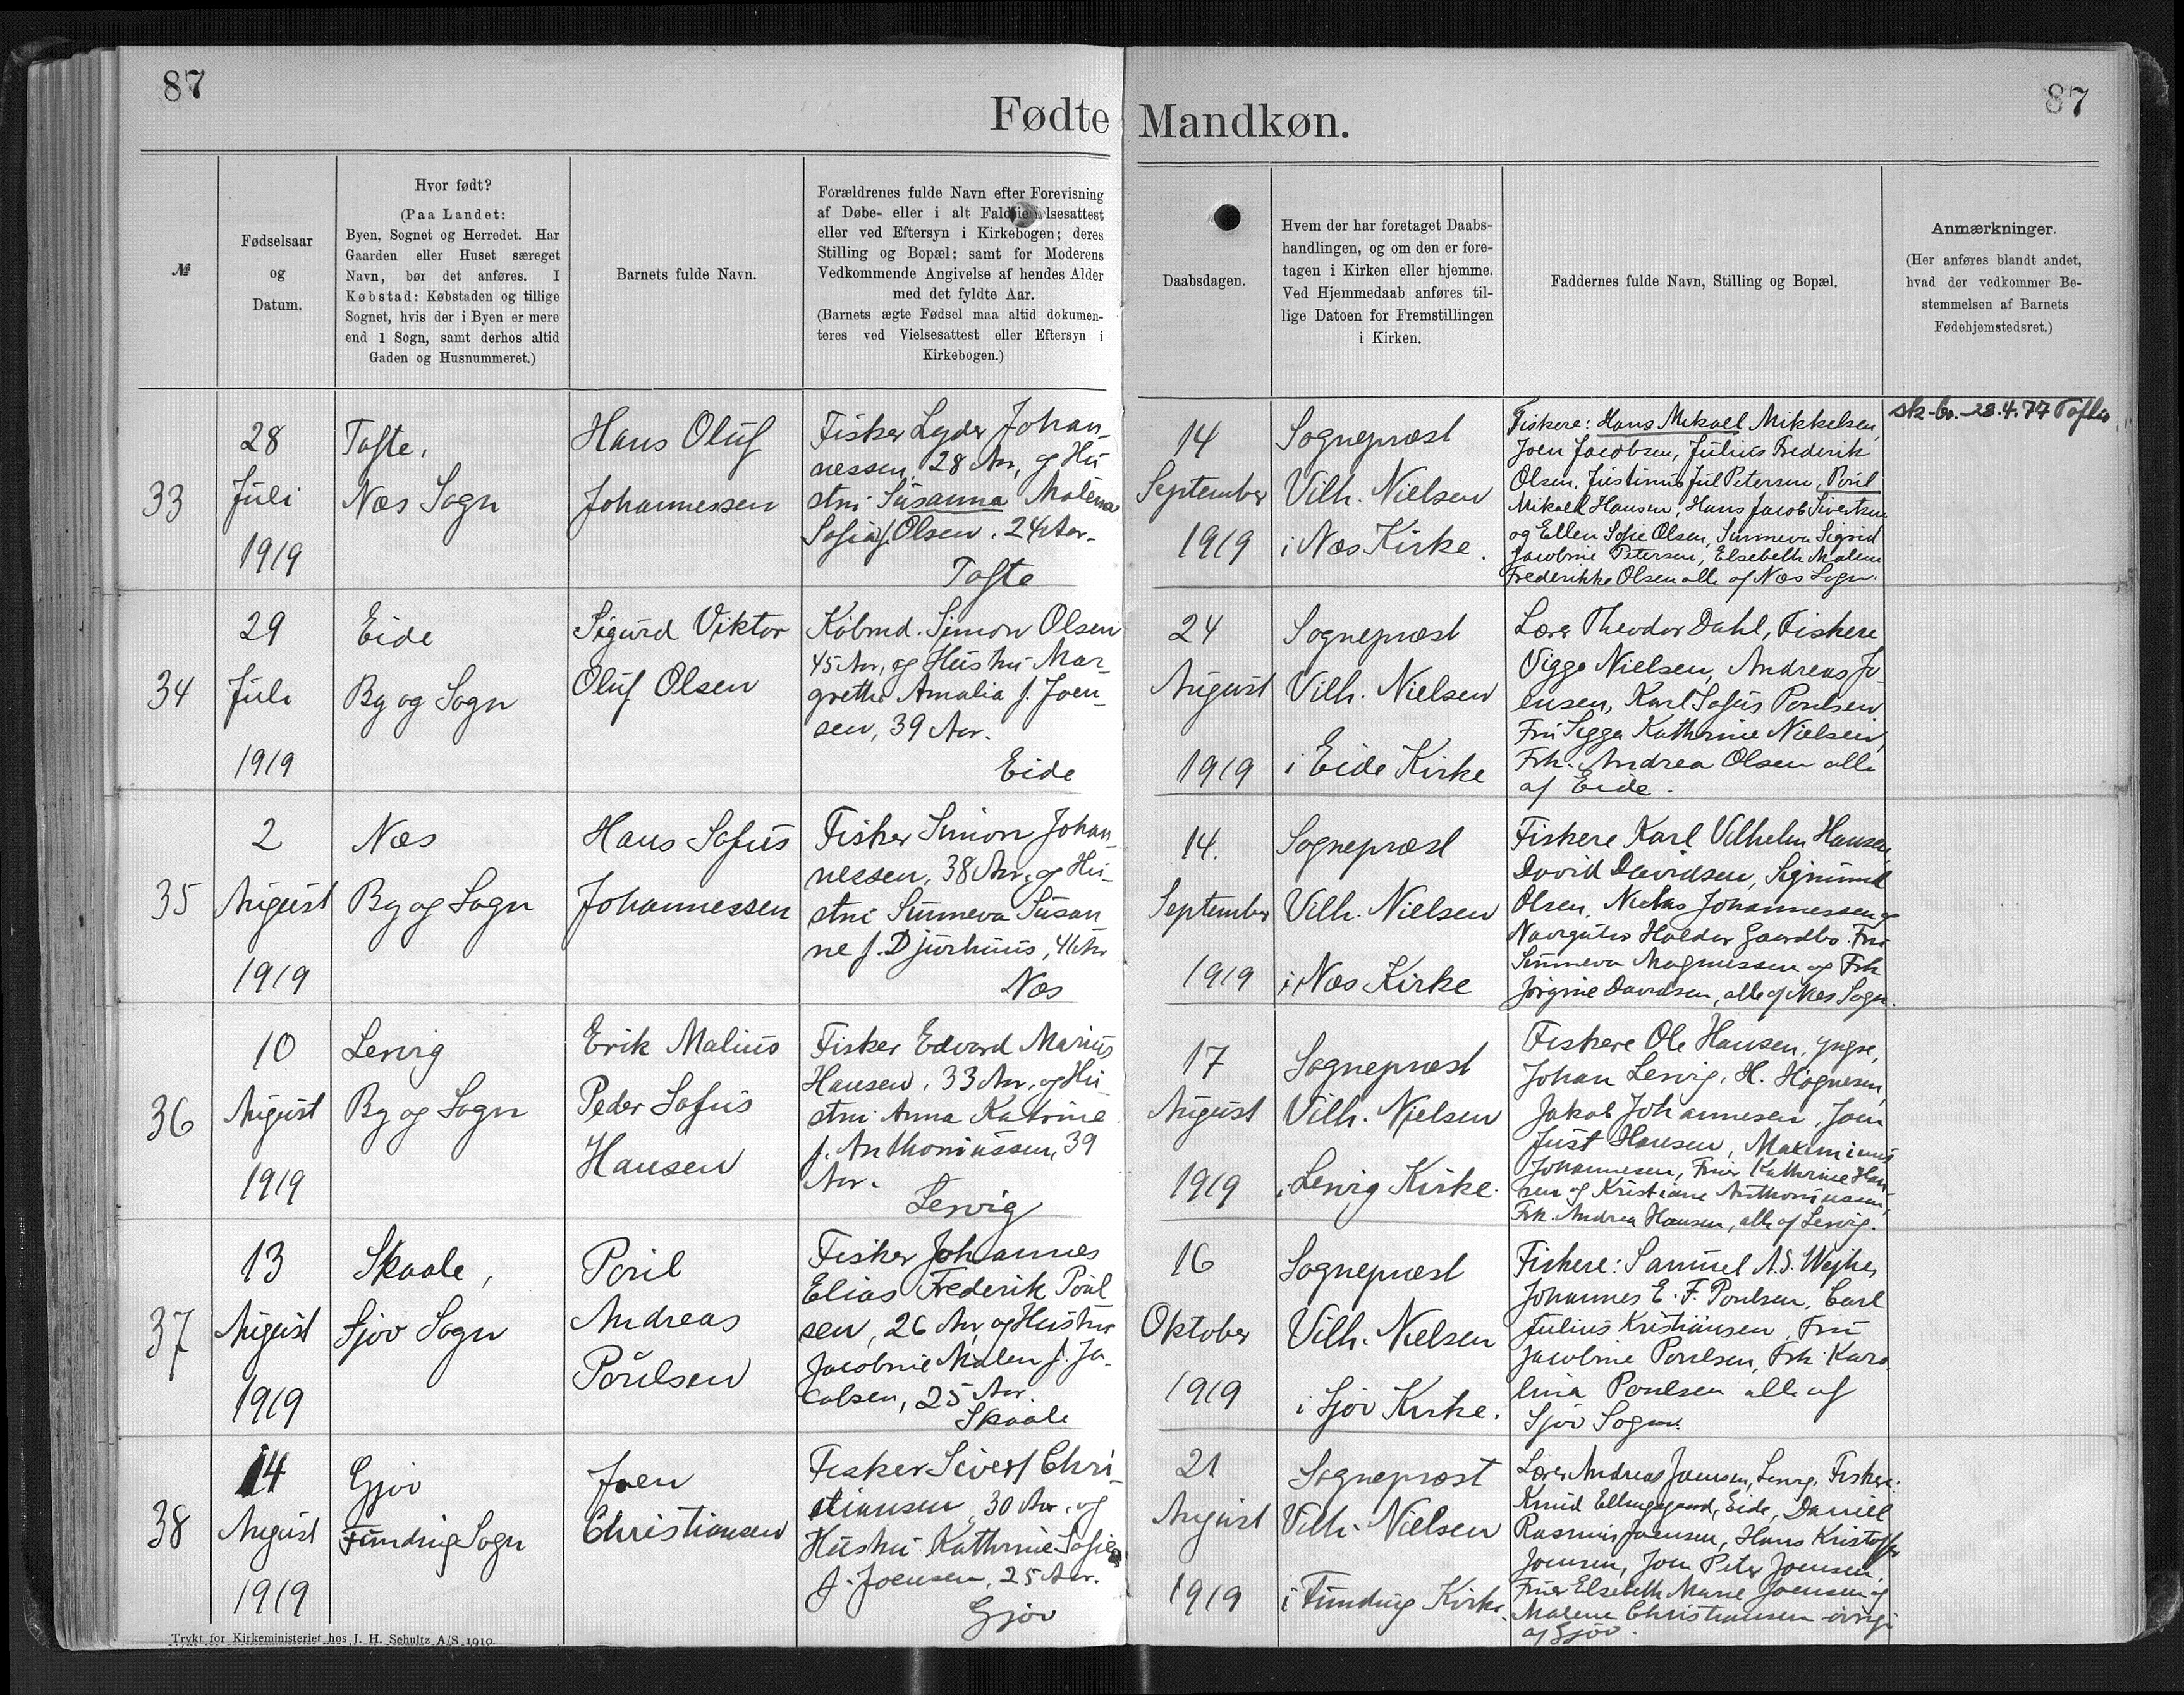 87
87
Fødte Mandkøn.
№
Fødselsaar
og
Datum.
Hvor født?
(Paa Landet:
Byen, Sognet og Herredet. Har
Gaarden eller Huset særeget
Navn, bør det anføres. I
Købstad: Købstaden og tillige
Sognet, hvis der i Byen er mere
end 1 Sogn, samt derhos altid
Gaden og Husnummeret.)
Barnets fulde Navn.
Forældrenes fulde Navn efter Forevisning
af Døbe- eller i alt Fald
eller ved Eftersyn i Kirkebogen; deres
Stilling og Bopæl; samt for Moderens
Vedkommende Angivelse af hendes Alder
med det fyldte Aar.
(Barnets ægte Fødsel maa altid dokumen-
teres ved Vielsesattest eller Eftersyn i
Kirkebogen.)
Daabsdagen.
Hvem der har foretaget Daabs-
handlingen, og om den er fore-
tagen i Kirken eller hjemme.
Ved Hjemmedaab anføres til-
lige Datoen for Fremstillingen
i Kirken.
Faddernes fulde Navn, Stilling og Bopæl.
Anmærkninger.
(Her anføres blandt andet,
hvad der vedkommer Be-
stemmelsen af Barnets
Fødehjemstedsret.)
33
28
Juli
1919
Tofte,
Næs Sogn
Hans Oluf
Johannessen
Fisker Lyder Johan-
nessen, 28 Aar, og Hu-
stru Susanna Malena
Sofia f. Olsen. 24 Aar.
Tofte
14
September
1919
Sognepræst
Vilh. Nielsen
i Næs Kirke.
Fiskere: Hans Mikael Mikkelsen,
Joen Jacobsen, Julius Frederik
Olsen, Justinus Jul Petersen, Poul
Mikael Hansen, Hans Jacob Sivertsen
og Ellen Sofie Olsen, Sunneva Sigrid
Jacobine Petersen, Elsebeth Malene
Frederikke Olsen alle af Næs Sogn.
sk-br. 28.4.77
34
29
Juli
1919
Eide
By og Sogn
Sigurd Viktor
Oluf Olsen
Købmd. Simon Olsen
45 Aar, og Hustru Mar-
grethe Amalia f. Joen-
sen, 39 Aar.
Eide
24
August
1919
Sognepræst
Vilh. Nielsen
i Eide Kirke
Lærer Theodor Dahl, Fiskere
Viggo Nielsen, Andreas Jo-
ensen, Karl Sofus Poulsen
Fru Sigga Kathrine Nielsen,
Frk. Andrea Olsen alle
af Eide.
35
2
August
1919
Næs
By og Sogn
Hans Sofus
Johannessen
Fisker Simon Johan-
nessen, 38 Aar, og Hu-
stru Sunneva Susan
ne f. Djurhuus, 41 Aar
Næs
14.
September
1919
Sognepræst
Vilh. Nielsen
i Næs Kirke
Fiskere Karl Vilhelm Hansen,
David Davidsen, Sigmund
Olsen, Niclas Johannessen og
Navigatør Haldor Gaardbo. Fru
Sunneva Magnussen og Frk
Jørgine Davidsen, alle af Næs Sogn.
36
10
August
1919
Lervig
By og Sogn
Erik Malius
Peder Sofus
Hansen
Fisker Edvard Marius
Hansen, 33 Aar, og Hu
stru Anna Katrine
f. Anthoniussen, 39
Aar.
Lervig
17
August
1919
Sognepræst
Vilh. Nielsen
i Lervig Kirke.
Fiskere Ole Hansen, yngre,
Johan Lervig, H. Høgnesen,
Jakob Johannesen, Joen
Just Hansen, Maximinus
Johannesen, Fruer Kathrine Han-
sen og Kristiane Anthoniussen,
Frk. Andrea Hansen, alle af Lervig.
37
13
August
1919
Skaale,
Sjov Sogn
Poul
Andreas
Poulsen
Fisker Johannes
Elias Frederik Poul
sen, 26 Aar, og Hustru
Jacobine Malen f. Ja-
cobsen, 25 Aar.
Skaale
16
Oktober
1919
Sognepræst
Vilh. Nielsen
i Sjov Kirke.
Fiskere: Samuel A. S. Wejhe,
Johannes E. F. Poulsen, Carl
Julius Kristiansen, Fru
Jacobine Poulsen, Frk. Karo
lina Poulsen alle af
Sjov Sogn.
38
14
August
1919
Gjov
Funding Sogn
Joen
Christiansen
Fisker Sivert Chri-
stiansen, 30 Aar, og
Hustru Kathrine Sofie
f. Joensen, 25 Aar.
Gjov
21
August
1919
Sognepræst
Vilh. Nielsen
i Funding Kirke.
Lærer Andreas Joensen, Lervig, Fiskere:
Knud Ellingsgaard, Eide, Daniel
Rasmus Joensen, Hans Kristoffer
Joensen, Joen Peter Joensen,
Fruer Elsebeth Marie Joensen og
Malene Christiansen øvrige
af Gjov.
Trykt for Kirkeministeriet hos J. H. Schultz A/S 1919.